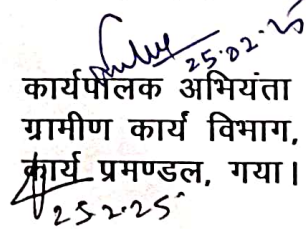 25.02.25
कार्यपालक अभियंता
ग्रामीण कार्य विभाग,
कार्य प्रमण्डल, गया।
25.2.25